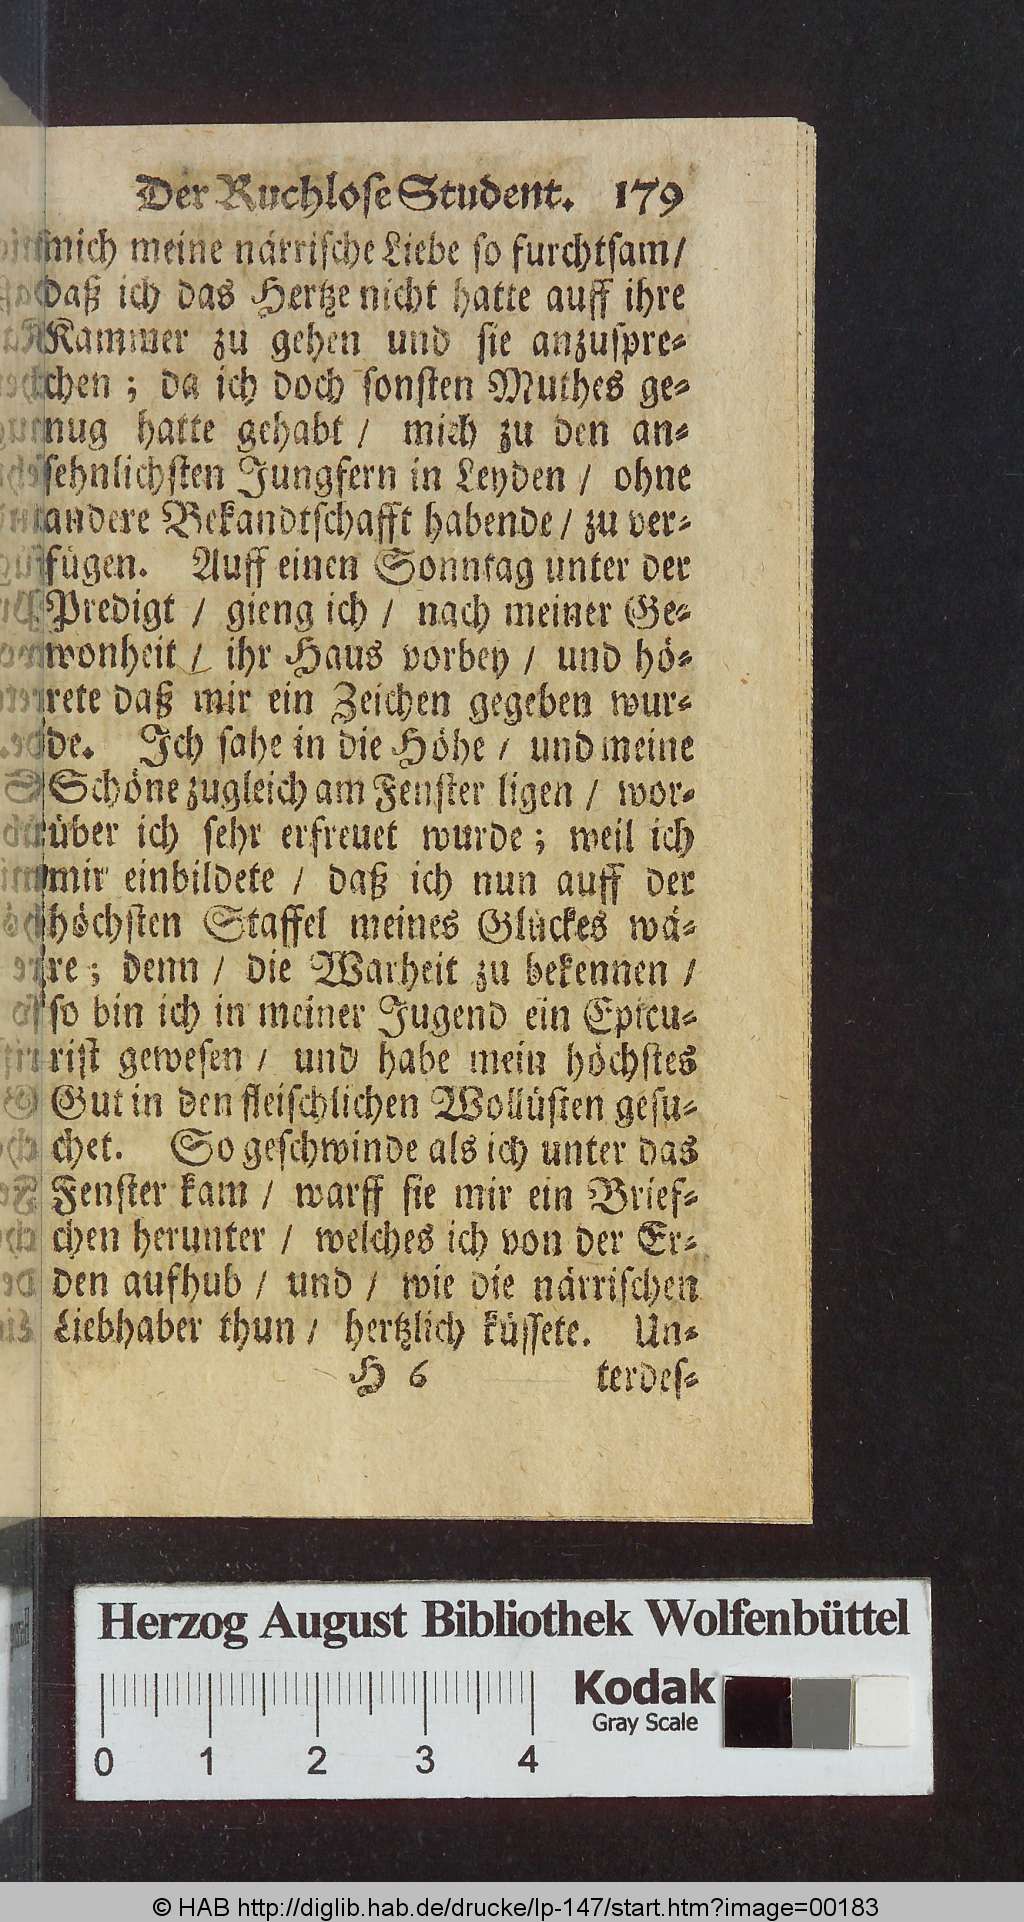 Der Ruchlose Student. 179
mich meine närrische Liebe so furchtsam/
daß ich das Hertze nicht hatte auff ihre
Kammer zu gehen und sie anzuspre-
chen ; da ich doch sonsten Muthes ge-
nug hatte gehabt / mich zu den an-
sehnlichsten Jungfern in Leyden / ohne
andere Bekandtschafft habende / zu ver-
fügen. Auff einen Sonntag unter der
Predigt / gieng ich / nach meiner Ge-
wonheit / ihr Haus vorbey / und hö-
rete daß mir ein Zeichen gegeben wur-
de. Ich sahe in die Höhe / und meine
Schöne zugleich am Fenster ligen / wor-
über ich sehr erfreuet wurde ; weil ich
mir einbildete / daß ich nun auff der
höchsten Staffel meines Glückes wä-
re ; denn / die Warheit zu bekennen /
so bin ich in meiner Jugend ein Epicu-
rist gewesen / und habe mein höchstes
Gut in den fleischlichen Wollüsten gesu-
chet. So geschwinde als ich unter das
Fenster kam / warff sie mir ein Brief-
chen herunter / welches ich von der Er-
den aufhub / und / wie die närrischen
Liebhaber thun / hertzlich küssete. Un-
H 6 terdes-
Herzog August Bibliothek Wolfenbüttel
Kodak
Gray Scale
0 1 2 3 4
© HAB http://diglib.hab.de/drucke/lp-147/start.htm?image=00183